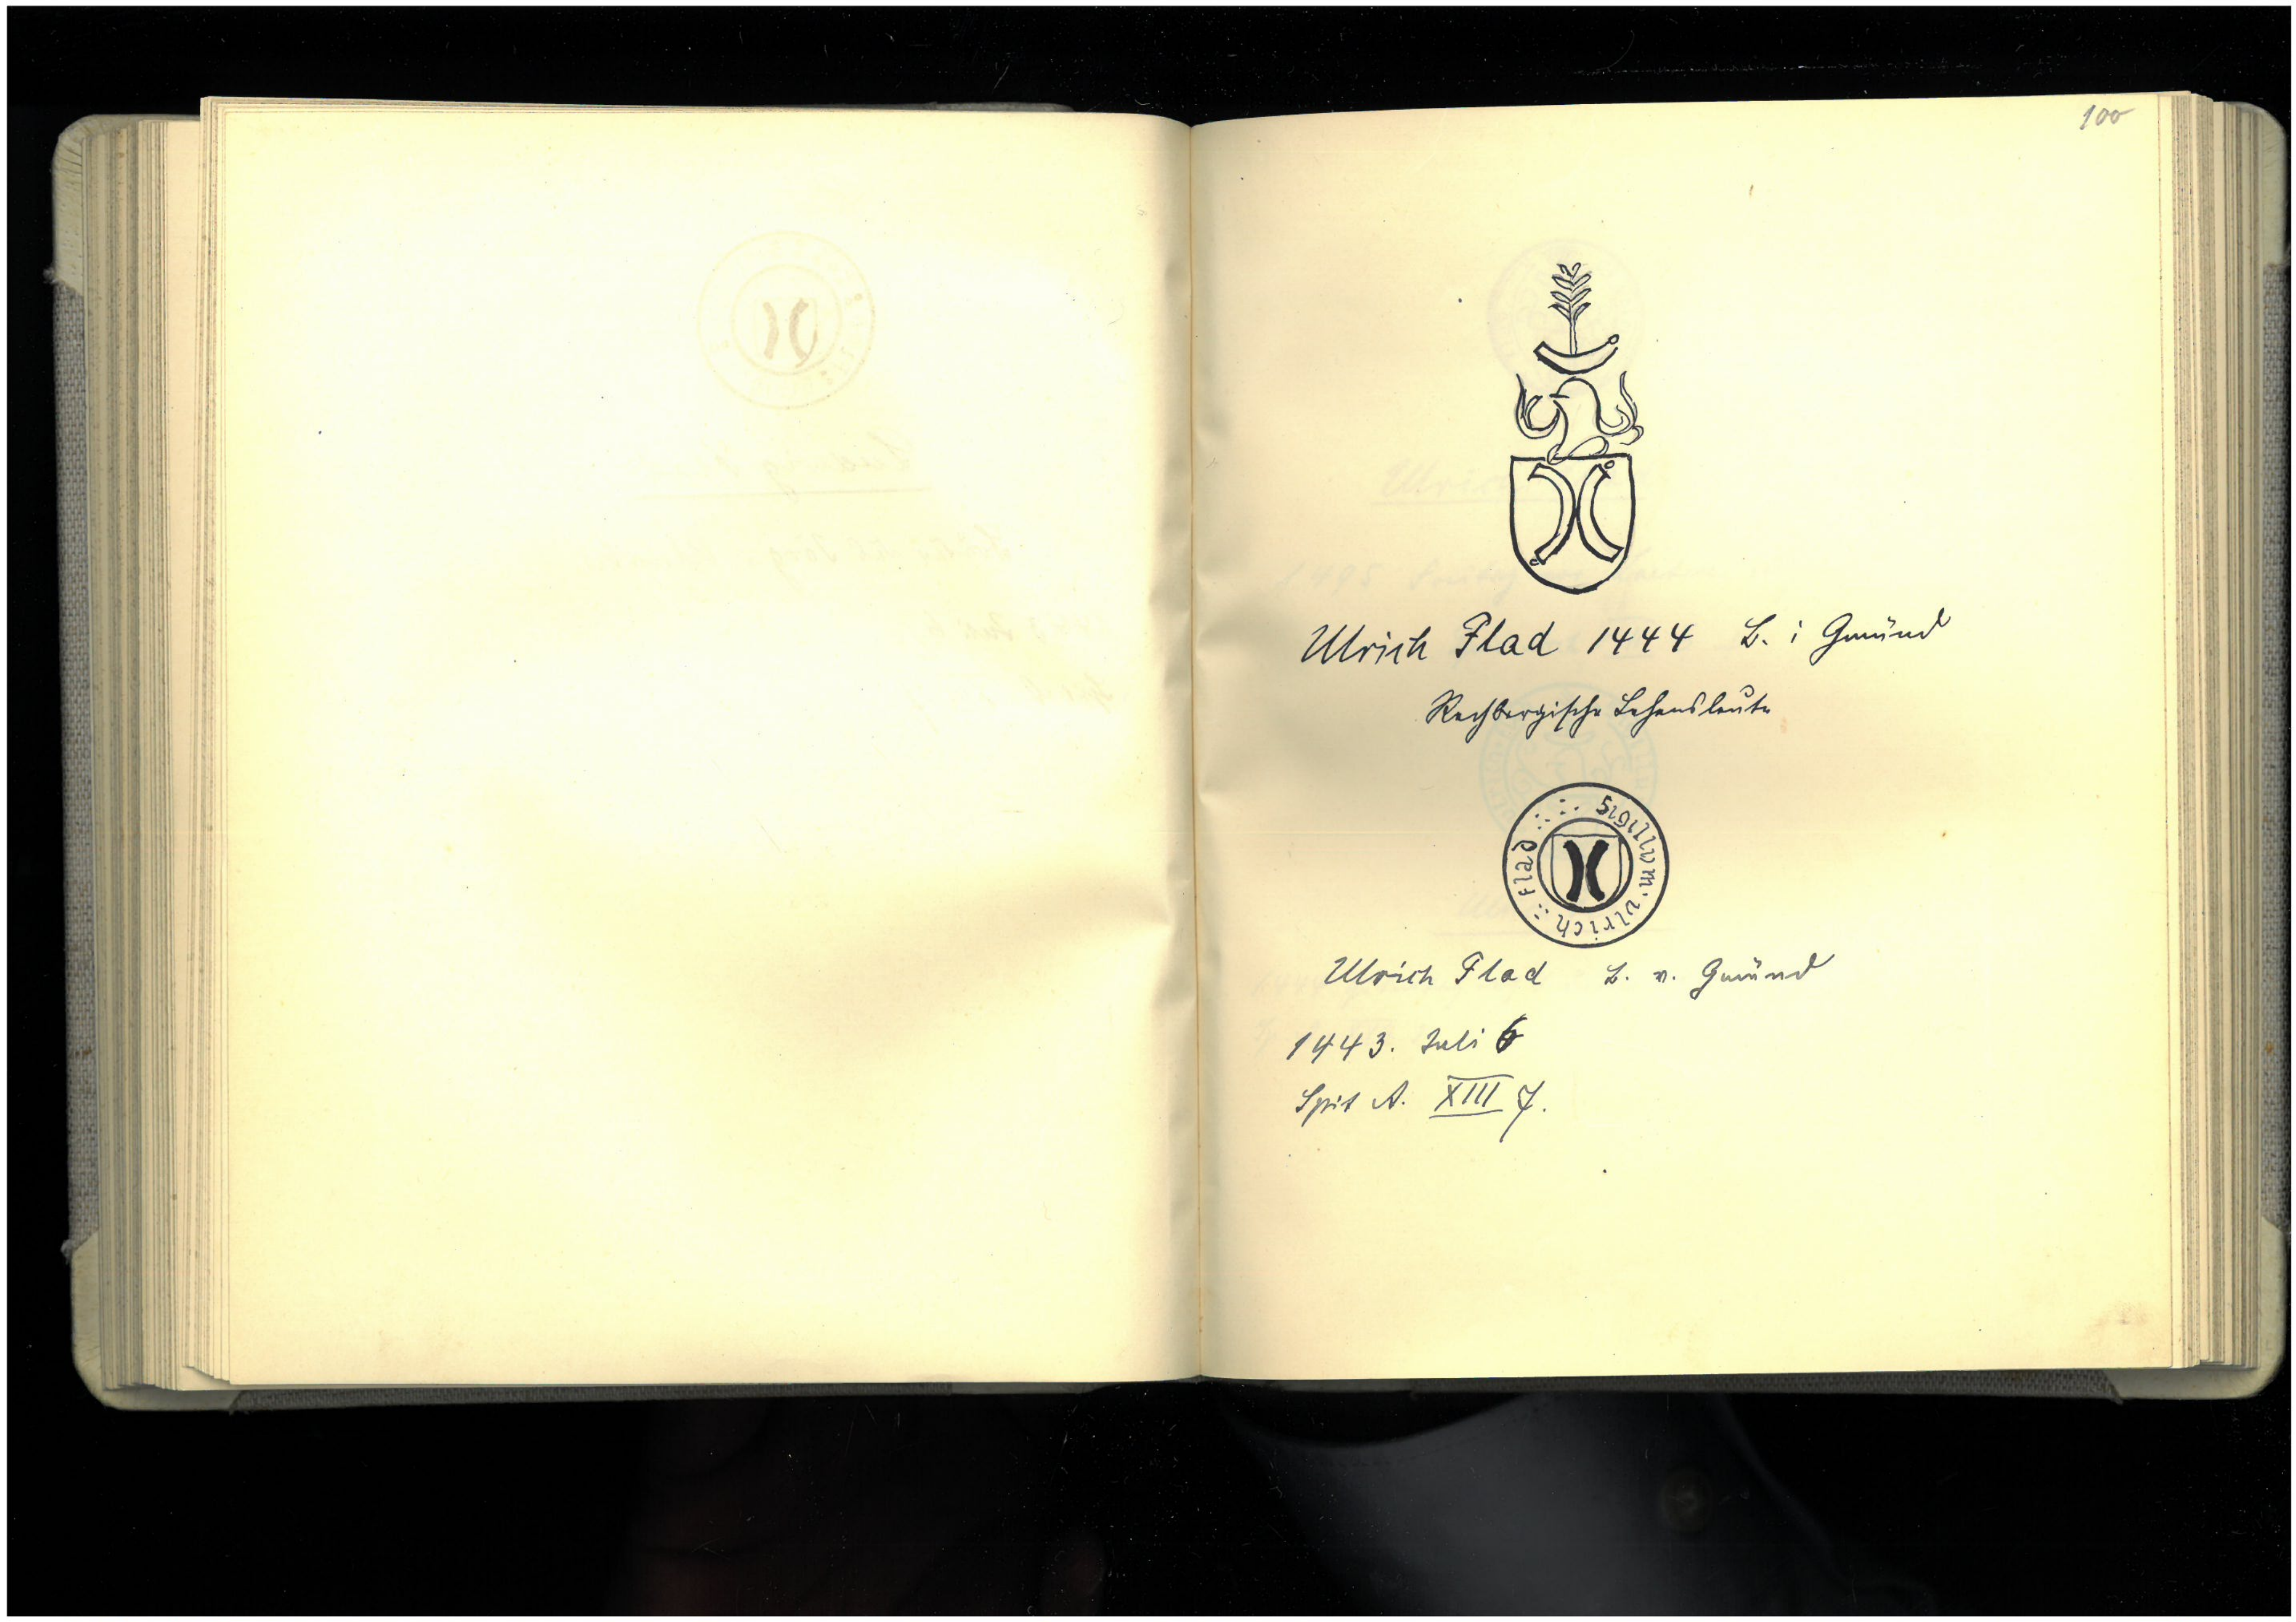 100
Ulrich Flad 1444 B. i Gmünd
Rechbergische Lehensleute
Sigillvm · vlrich :: Flad
Ulrich Flad B. v. Gmünd
1443. Juli 6
Spit A. XIII 7.